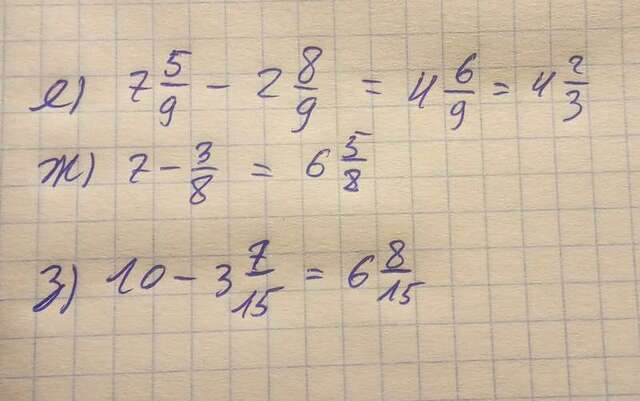 е) 7 5/9 - 2 8/9 = 4 6/9 = 4 2/3
ж) 7 - 3/8 = 6 5/8
з) 10 - 3 7/15 = 6 8/15